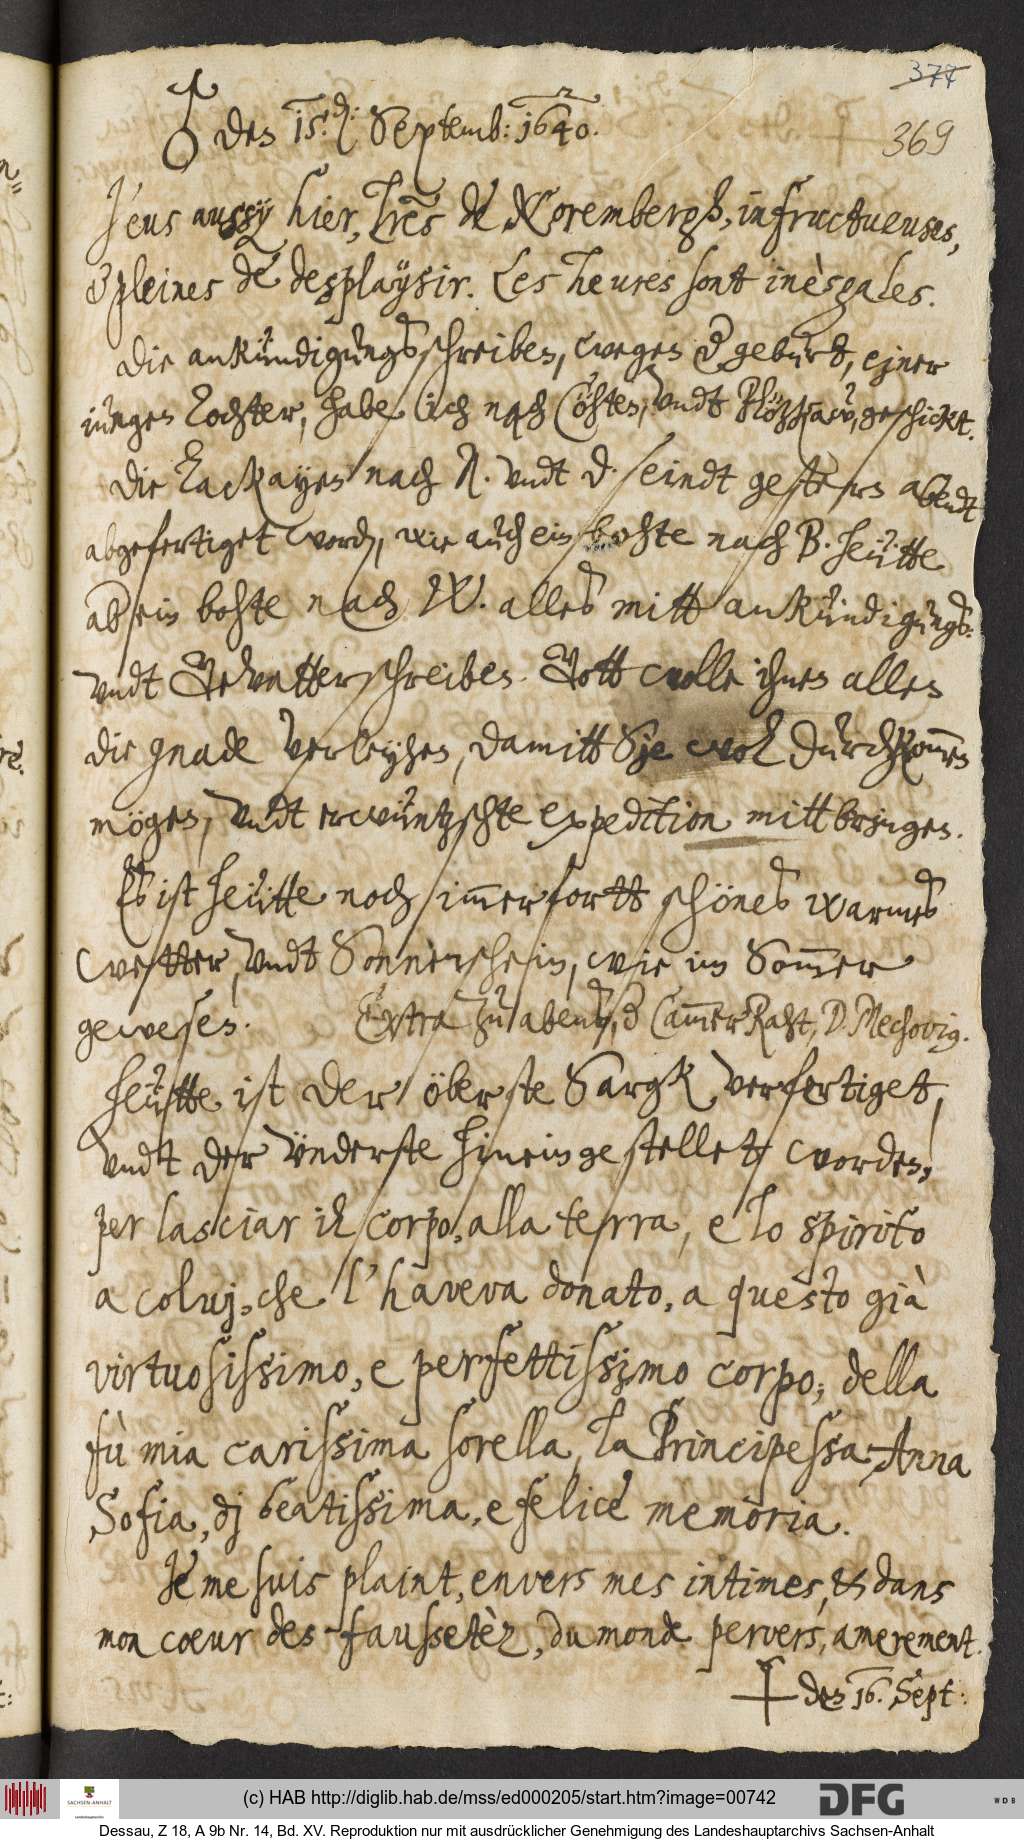 377
369
♂ den 15.d. Septemb: 1640.
J'eus aussy hier, Lr̃es de Noremberg, infructueuses,
& pleines de desplaysir. Les heures sont inèsgales.
Die ankündigungsschreiben, wegen d geburt, einer
iungen Tochter, habe ich nach Cöhten, vndt Plötzkaw, geschickt.
Die Lackayen nach A. vndt D. seindt gestern abendt
abgefertiget word, wie auch ein bohte nach B. heütte
ab ein bohte nach W. alles mitt ankündigungs-
vndt Gevatterschreiben. Gott wolle ihnen allen
die gnade verleyhen, damitt Sje wol durchkom̃en
mögen, vndt erwüntzschte expedition mittbringen.
Es ist heütte noch im̃erfortt schönes warmes
wetter, vndt Sonnenschein, wie im Som̃er
gewesen. Extra zu abends, d Cam̃erRaht, D. Mechovig.
Heütte ist der öberste Sargk verfertiget,
vndt der vnderste hineingestellet worden,
per lasciar il corpo, alla terra, e lo spirito
a coluj, che l'haveva donato, a questo già
virtuosissimo, e perfettissimo corpo, della
fù mia carissima sorella, la Principessa Anna
Sofia, dj beatissima, e felice memoria.
Je me suis plaint, envers mes intimes, & dans
mon cœur des faussetèz, du monde pervers, amerement.
den 16. Sept:
(c) HAB http://diglib.hab.de/mss/ed000205/start.htm?image=00742
SACHSEN-ANHALT
DFG
WDB
Dessau, Z 18, A 9b Nr. 14, Bd. XV. Reproduktion nur mit ausdrücklicher Genehmigung des Landeshauptarchivs Sachsen-Anhalt